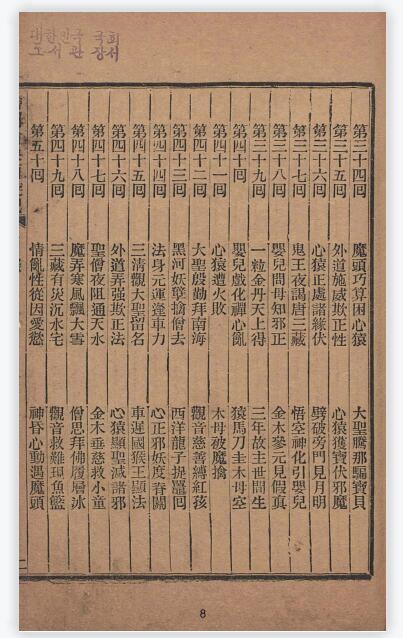 대한민국 국회
도서관 장서
第三十四囘 魔頭巧算困心猿 大聖騰那騙寶貝
第三十五囘 外道施威欺正性 心猿獲寶伏邪魔
第三十六囘 心猿正處諸緣伏 劈破旁門見月明
第三十七囘 鬼王夜謁唐三藏 悟空神化引嬰兒
第三十八囘 嬰兒問母知邪正 金木參元見假眞
第三十九囘 一粒金丹天上得 三年故主世間生
第四十囘 嬰兒戲化禪心亂 猿馬刀圭木母空
第四十一囘 心猿遭火敗 木母被魔擒
第四十二囘 大聖殷勤拜南海 觀音慈善縛紅孩
第四十三囘 黑河妖孽擒僧去 西洋龍子捉鼉囘
第四十四囘 法身元運逢車力 心正邪妖度脊關
第四十五囘 三淸觀大聖留名 車遲國猴王顯法
第四十六囘 外道弄强欺正法 心猿顯聖滅諸邪
第四十七囘 聖僧夜阻通天水 金木垂慈救小童
第四十八囘 魔弄寒風飄大雪 僧思拜佛履層冰
第四十九囘 三藏有災沉水宅 觀音救難現魚籃
第五十囘 情亂性從因愛慾 神昏心動遇魔頭
8